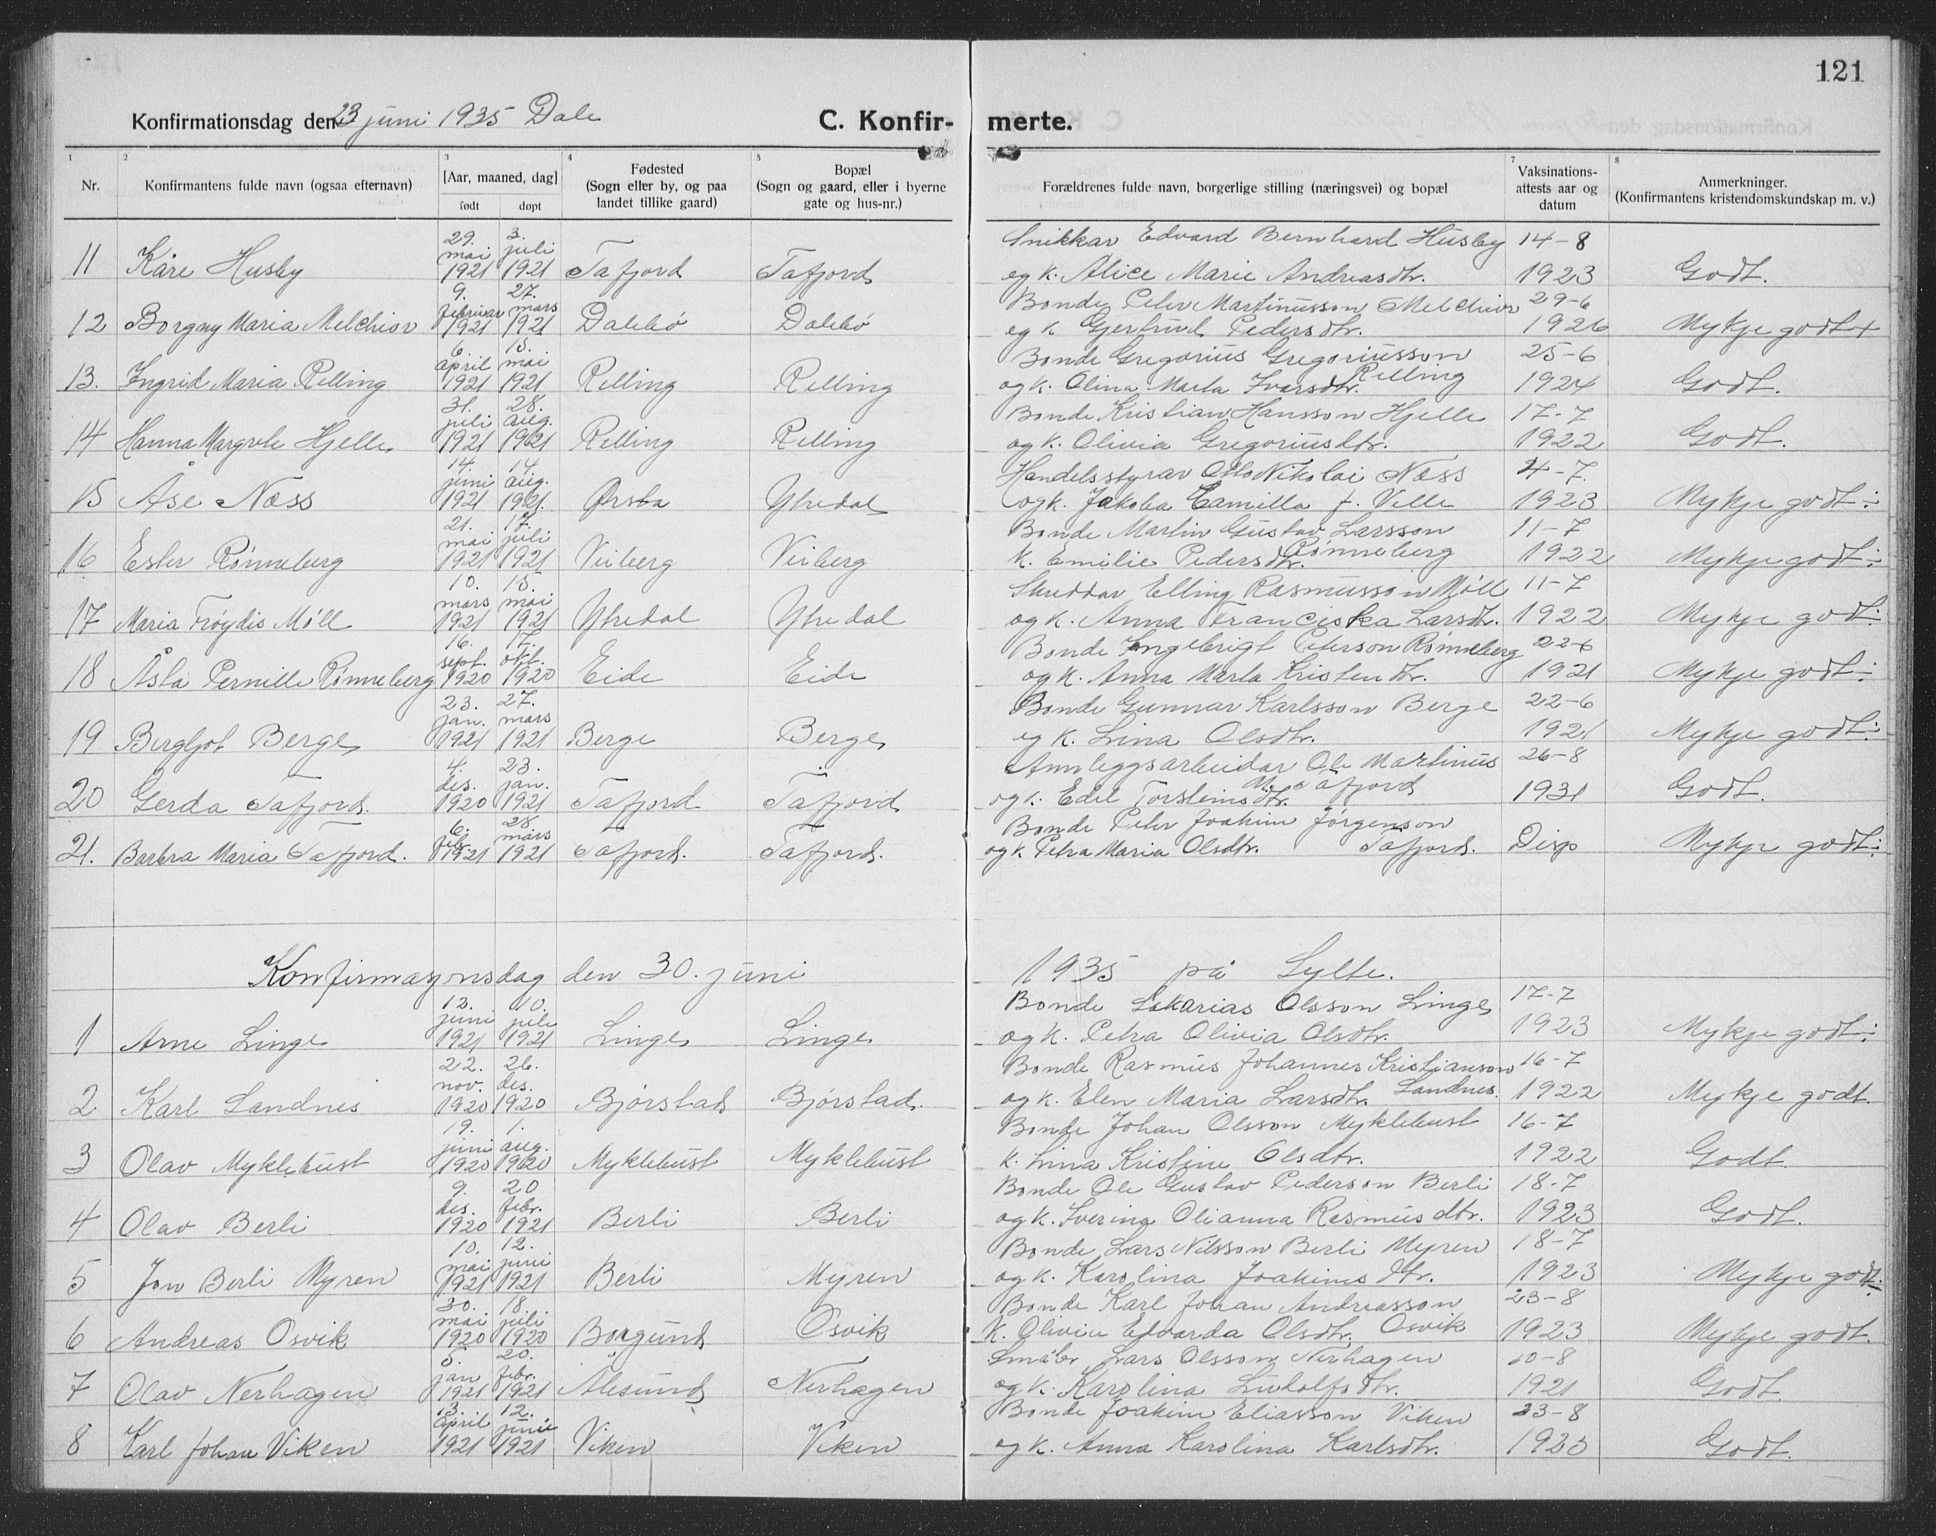 121
Konfirmationsdag den 23 juni 1935 Dale C. Konfir- merte.
1 2 3 4 5 7 8
Nr. Konfirmantens fulde navn (ogsaa efternavn) [Aar, maaned, dag] født døpt Fødested (Sogn eller by, og paa landet tillike gaard) Bopæl (Sogn og gaard, eller i byerne gate og hus-nr.) Forældrenes fulde navn, borgerlige stilling (næringsvei) og bopæl Vaksinations-attests aar og datum Anmerkninger. (Konfirmantens kristendomskundskap m. v.)
11 Kåre Husby 29. mai 1921 3. juli 1921 Tafjord Tafjord Snikkar Edvard Bernhard Husby og k. Alice Marie Andreasdtr. 14-8 1923 Godt.
12 Borgny Maria Melchior 9. februar 1921 27. mars 1921 Dalebø Dalebø Bonde Peter Martinusson Melchior og k. Gertrud Pedersdtr. 29-6 1926 Mykje godt +
13. Ingrid Maria Relling 6. april 1921 15. mai 1921 Relling Relling Bonde Gregorius Gregoriusson Relling og k. Olina Marta Ivarsdtr. 25-6 1924 Godt.
14 Hanna Margrete Hjelle 31. juli 1921 28. aug. 1921 Relling Relling Bonde Kristian Hansson Hjelle og k. Olivia Gregoriusdtr. 17-7 1922 Godt.
15 Åse Næss 14. juni 1921 14. aug. 1921 Ørsta Ytredal Handelsstyrar Otto Nikolai Næss og k. Jakoba Camilla f. Velle 4-7. 1923 Mykje godt ÷
16 Ester Rønneberg 21. mai 1921 17. juli 1921 Veiberg Veiberg Bonde Martin Gustav Larsson Rønneberg k. Emilie Pedersdtr. 11-7 1922 Mykje godt ÷
17 Maria Frøydis Møll 10. mars 1921 15. mai 1921 Ytredal Ytredal Skreddar Elling Rasmusson Møll og k. Anna Franciska Larsdtr. 11-7 1922 Mykje godt ÷
18 Åsta Pernille Rønneberg 16. sept. 1920 17. okt. 1920 Eide Eide Bonde Ingebrigt Peterson Rønneberg og k. Anna Marta Kristendtr. 22-6 1921 Mykje godt ÷
19 Bergljot Berge 23. jan. 1921 27. mars 1921 Berge Berge Bonde Gunnar Karlsson Berge og k. Lina Olsdtr. 22-6 1921 Mykje godt ÷
20 Gerda Tafjord. 4. des. 1920 23. jan. 1921 Tafjord Tafjord Annleggsarbeidar Ole Martinus M. Tafjord og k. Edel Torsteinsdtr. 26-8 1931 Godt.
21. Barbra Maria Tafjord. 6. feb. 1921 28 mars 1921 Tafjord. Tafjord. Bonde Peter Joakim Jørgenson Tafjord. og k. Petra Maria Olsdtr. Disp Mykje godt ÷
Konfirmasjonsdag den 30. juni 1935 på Sylte.
1 Arne Linge 13. juni 1921 10. juli 1921 Linge Linge Bonde Sakarias Olsson Linge og k. Petra Olivia Olsdtr. 17-7 1923 Mykje godt ÷
2 Karl Landnes 22. nov. 1920 26. des. 1920 Bjørstad Bjørstad Bonde Rasmus Johannes Kristianson Landnes og k. Elen Maria Larsdtr. 16-7 1922 Mykje godt.
3 Olav Myklebust 19. juni 1920 1. aug. 1920 Myklebust Myklebust Bonde Johan Olsson Myklebust k. Lina Kristine Olsdtr. 16-7 1922 Godt.
4 Olav Berli 9. des. 1920 20 febr. 1921 Berli Berli Bonde Ole Gustav Pederson Berli og k. Sverina Olianna Rasmusdtr. 18-7 1923 Godt.
5 Jon Berli Myren 10. mai 1921 12. juni 1921 Berli Myren Bonde Lars Nilsson Berli Myren og k. Karolina Joakimsdtr. 18-7 1923 Mykje godt ÷
6 Andreas Osvik 30. mai 1920 18 juli 1920 Borgund Osvik Bonde Karl Johan Andreasson Osvik k. Olivia Edvarda Olsdtr. 23-8 1923 Mykje godt.
7 Olav Nerhagen 5. jan 1921 20. febr. 1921 Ålesund Nerhagen Småbr. Lars Olsson Nerhagen og k. Karolina Ludolfsdtr. 10-8 1921 Godt
8 Karl Johan Viken 13. april 1921 12. juni 1921 Viken Viken Bonde Joakim Eliasson Viken og k. Anna Karolina Karlsdtr. 23-8 1923 Godt.